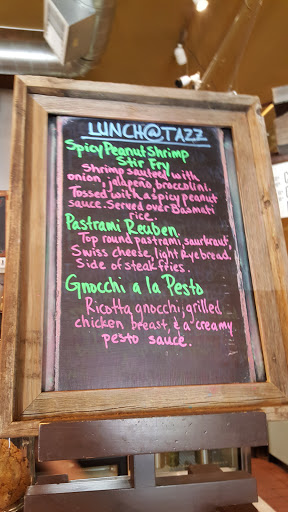 LUNCH@TAZZ
Spicy Peanut Shrimp
Stir Fry
Shrimp sauteed with
onion, jalapeño, broccolini.
Tossed with a spicy peanut
sauce. Served over Basmati
rice.
Pastrami Reuben.
Top round pastrami, saurkraut,
Swiss cheese, light Rye bread.
Side of steak fries.
Gnocchi a la Pesto
Ricotta gnocchi, grilled
chicken breast, & a creamy
pesto sauce.